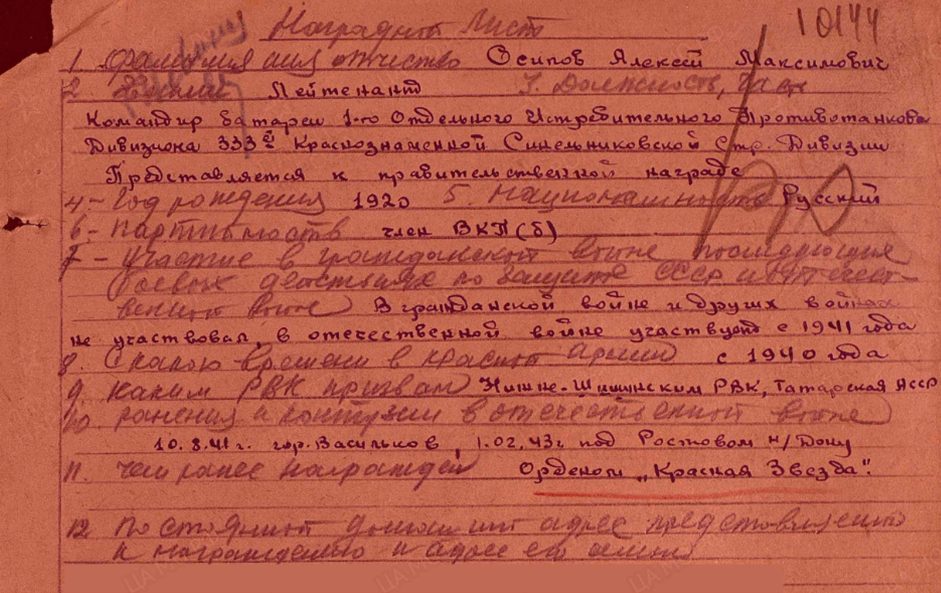 Наградной Лист
10144
1 Фамилия имя отчество Осипов Алексей Максимович
2. Звание Лейтенант 3. Должность, часть
Командир батареи 1-го Отдельного Истребительного Противотанково
Дивизиона 333й Краснознаменной Синельниковской Стр. Дивизии
Представляется к правительственной награде
4- Год рождения 1920 5. Национальность Русский
6- Партийность член ВКП(б)
7- Участие в гражданской войне последующих
боевых действиях по защите СССР и отечест-
венной войне В гражданской войне и других войнах
не участвовал, в отечественной войне участвует с 1941 года
8. С какого времени в красной Армии с 1940 года
9. Каким РВК призван РВК, Татарская АССР
10. ранения и контузии в отечественной войне
10.8.41г. гор. Васильков, 1.02.43г под Ростовом н/Дону
11. Чем ранее награжден Орденом „Красная Звезда".
12 Постоянный домашний адрес представляемого
к награждению и адрес его семьи